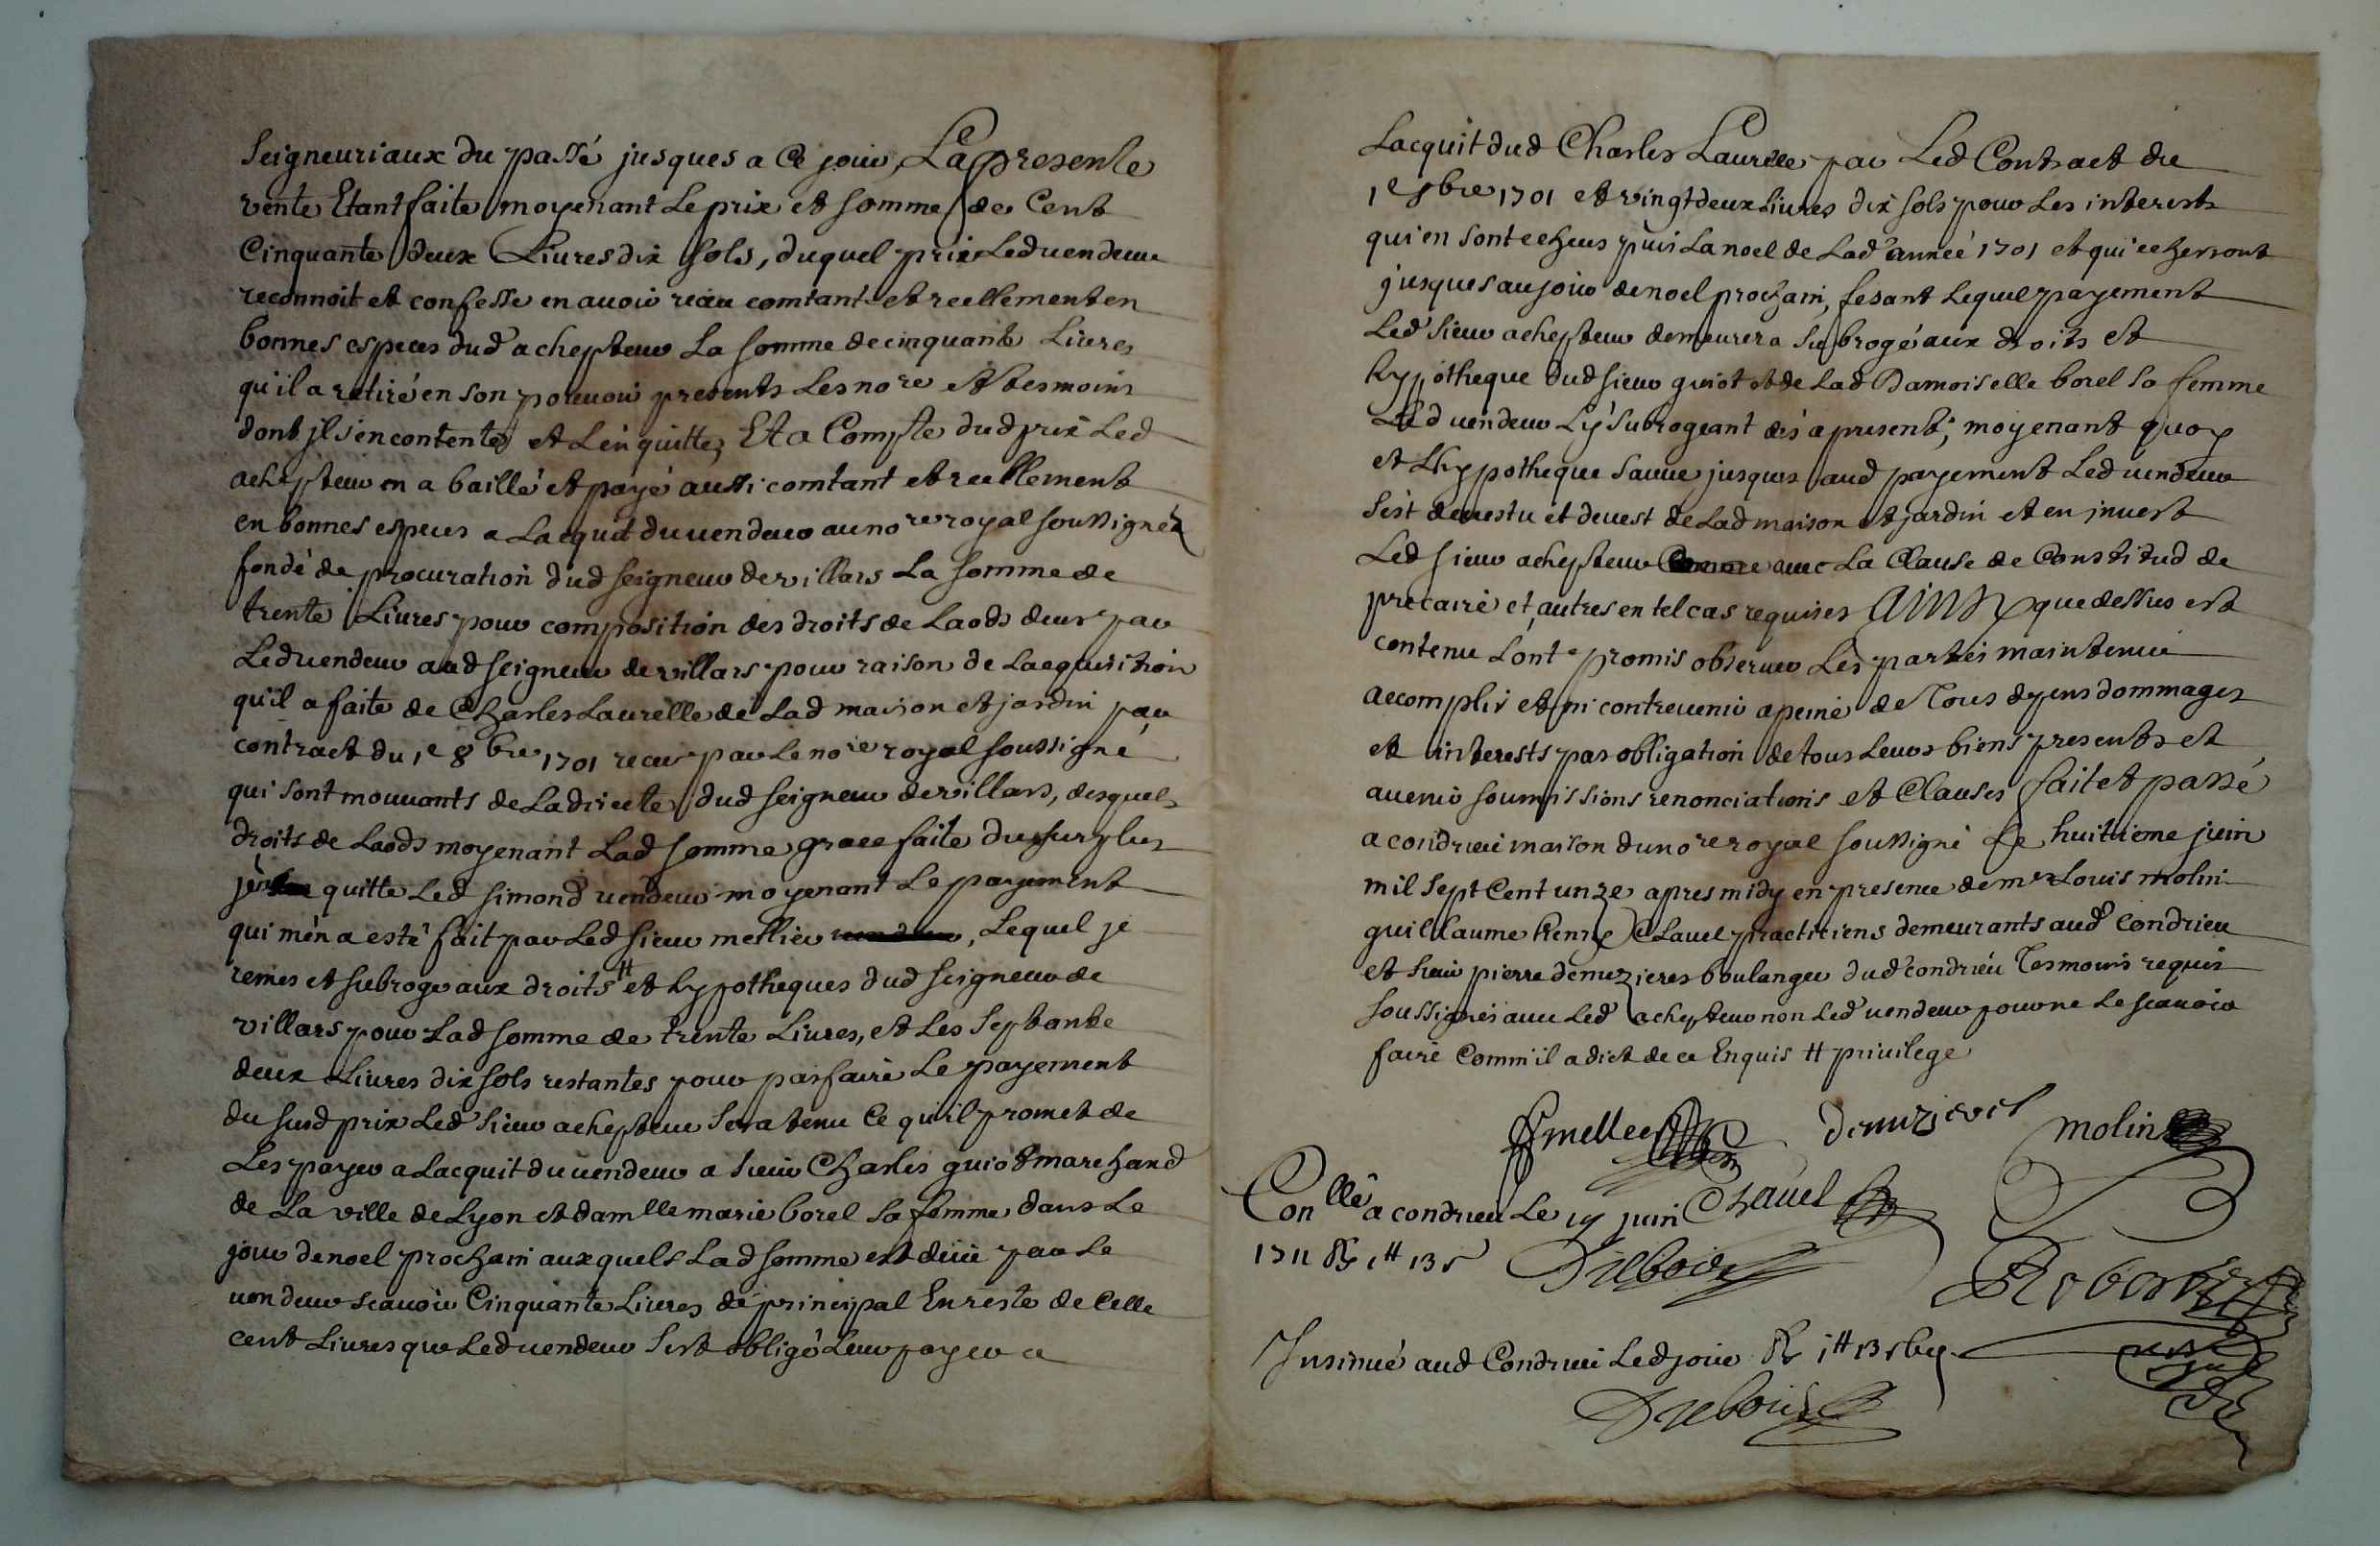 Seigneuriaux du passé jusques a Ce jour, La presente
vente Etant faite moyenant Le prix et somme de Cent
Cinquante deux Liures dix sols, duquel prix Led uendeur
reconnoit et confesse en auoir receu comtant et reellement en
bonnes especes dud achepteur La somme de cinquante Liures
qu'il a retiré en son pouuoir presents Les nore et tesmoins
dont jl s'en contente et L'en quitte, Et a Compte dud prix Led
achepteur en a baillé et payé aussi comtant et reellement
en bonnes especes a Lacquit du uendeur au nore royal soussigné
fondé de procuration dud seigneur de villars La somme de
trente Liures pour composition des droits de Laods deus par
Led uendeur aud seigneur de villars pour raison de Lacquisition
qu'il a faite de Charles Laurelle de Lad maison et jardin par
contract du 1e 8bre 1701 receu par Le nore royal soussigné
qui sont mouuants de La directe dud seigneur de villars, desquels
droits de Laods moyenant Lad somme grace faite du surplus
j'en quitte Led simond uendeur moyenant Le payement
qui m'en a esté fait par Led sieur mellier, Lequel je
remes et subroge aux droits # et hypotheques dud seigneur de
villars pour Lad somme de trente Liures, et Les septante
deux Liures dix sols restantes pour parfaire Le payement
du susd prix Led sieur achepteur sera tenu Ce qu'il promet de
Les payer a Lacquit du uendeur a sieur Charles guiot marchand
de La ville de Lyon et damlle marie borel sa femme dans Le
jour de noel prochain auxquels Lad somme est deüe par Le
uendeur scauoir Cinquante Liures de principal En reste de Celle
cent Liures que Led uendeur s'est obligé Leur payer a
Lacquit dud Charles Laurelle par Led Contract du
1e 8bre 1701 et vingt deux Liures dix sols pour Les interests
qui en sont echeus puis La noel de Lad année 1701 et qui echerront
jusques au jour de noel prochain, fesant Lequel payement
Led sieur achepteur demeurera subrogé aux droits et
hypotheque dud sieur guiot et de Lad Damoiselle borel sa femme
Led uendeur L'y subrogeant des a present, moyenant quoy
et L'hypotheque sauue jusques aud payement Led uendeur
s'est deuestu et deuest de Lad maison et jardin et en jnuest
Led sieur achepteur auec La Clause de Constitud de
precaire et autres en tel cas requises Ainsy que dessus est
contenu L'ont promis obseruer Les parties maintenir
accomplir et ni contreuenir a peine de Tous depens dommages
et interests par obligation de tous Leurs biens presents et
auenir soumissions renonciations et Clauses fait et passé
a condrieu maison du nore royal soussigné Le huitieme juin
mil sept Cent unze apres midy en presence de mre Louis molin
guillaume henry Clauel practiciens demeurants aud Condrieu
et sieur pierre demezieres boulanger dud condrieu Tesmoins requis
soussignés auec Led achepteur non Led uendeur pour ne Le scauoir
faire Comm'il a dict de ce Enquis # priuilege
mellier demezieres molin
Conllé a condrieu Le 19 juin Chauel
1711 R 1# 13s Dubois
Robert
Jnsinué aud Condrieu Led jour R 1# 13s
Dubois